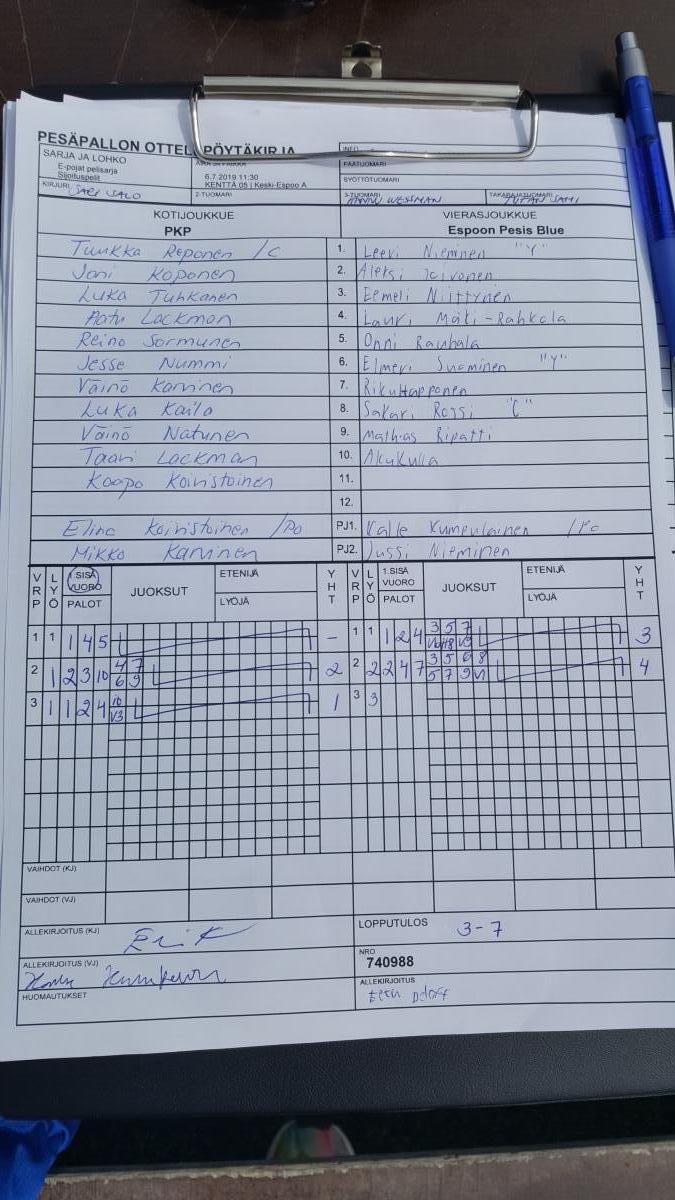 PESÄPALLON OTTELUPÖYTÄKIRJA
SARJA JA LOHKO
E-pojat pelisarja
Sijoituspelit
6.7.2019 11:30
KENTTÄ 05 | Keski-Espoo A
INFO
PÄÄTUOMARI
SYÖTTÖTUOMARI
KIRJURI SARI SALO
2-TUOMARI
3-TUOMARI
TAKARAJATUOMARI
KOTIJOUKKUE VIERASJOUKKUE
PKP Espoon Pesis Blue
Tuukka Reponen /C 1. Leevi Nieminen "Y"
Joni Koponen 2. Aleksi Toivonen
Luka Tuhkanen 3. Eemeli Niittynen
Aatu Lackman 4. Lauri Mäki-Rahkola
Reino Sormunen 5. Onni Rauhala
Jesse Nummi 6. Elmeri Suominen "Y"
Väinö Karvinen 7. Riku Happonen
Luka Kaila 8. Sakari Rossi "C"
Väinö Natunen 9. Mathias Ripatti
Taavi Lackman 10. Aku Kulla
Kaapo Koivistoinen 11.
12.
Elina Koivistoinen /Po PJ1. Kalle Kumpulainen
Mikko Karvinen PJ2. Jussi Nieminen
VRP LYÖ 1.SISÄ VUORO PALOT JUOKSUT ETENIJÄ LYÖJÄ YHT VRP LYÖ 1.SISÄ VUORO PALOT JUOKSUT ETENIJÄ LYÖJÄ YHT
1 1 1 4 5 - 1 1 1 2 4 3 5 7 3
2 1 2 3 10 4 7 2 2 2 2 4 7 3 5 6 8 4
6 9 5 7 9 V1
3 1 1 2 4 10 1 3 3
V3
VAIHDOT (KJ)
VAIHDOT (VJ)
ALLEKIRJOITUS (KJ) Erik
LOPPUTULOS 3-7
ALLEKIRJOITUS (VJ)
NRO
740988
HUOMAUTUKSET
ALLEKIRJOITUS